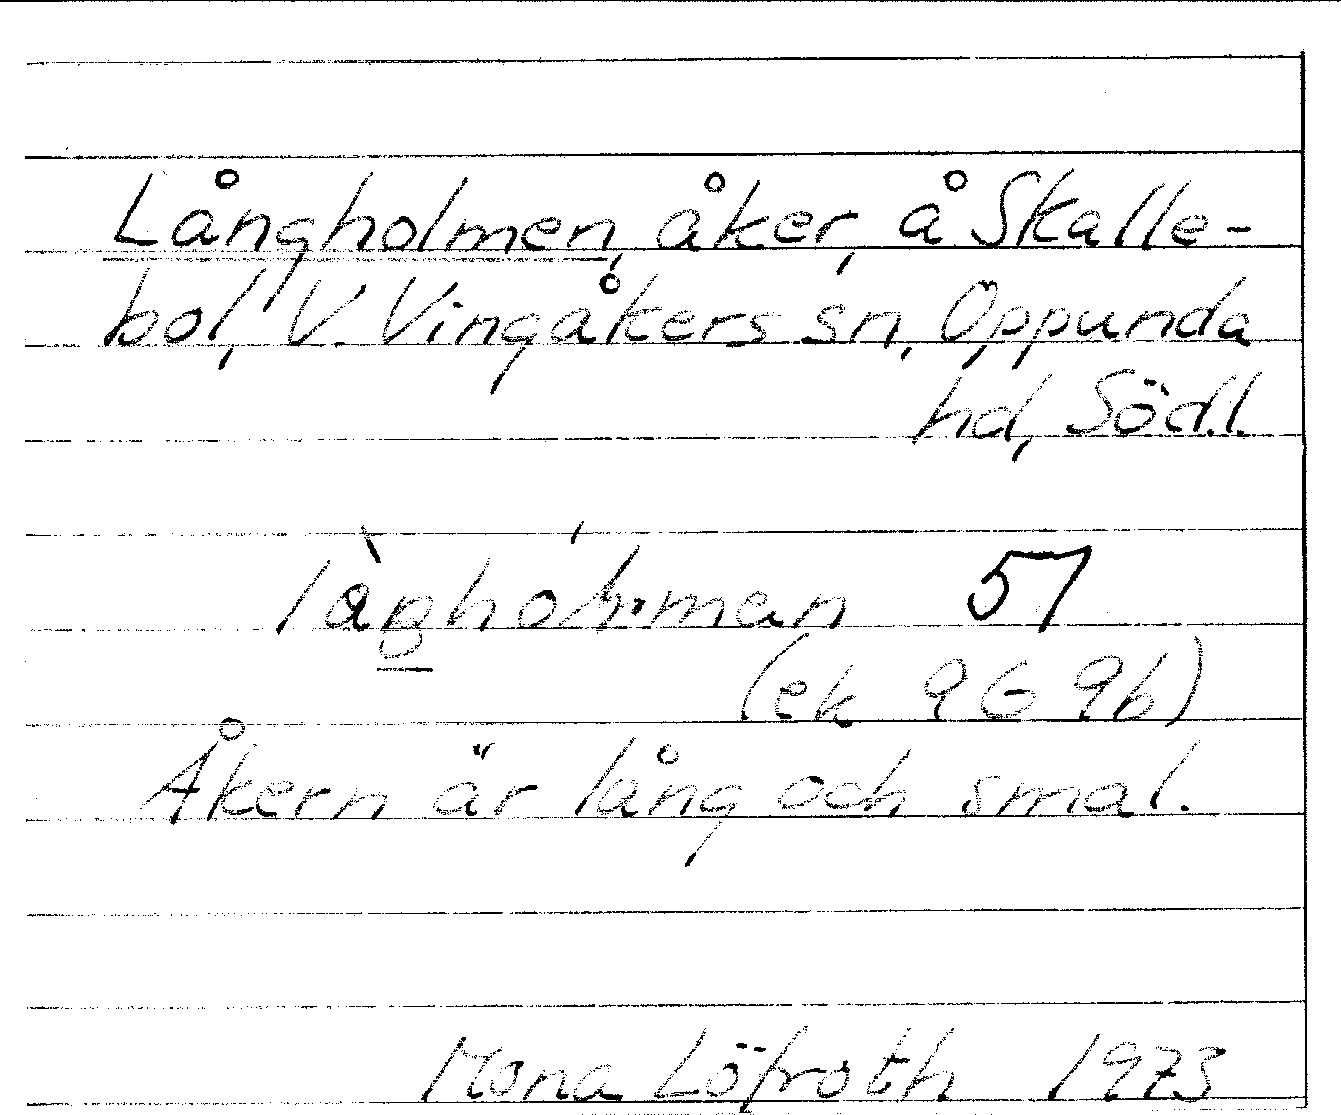 Långholmen, åker, å Skalle-
bol, V. Vingåkers sn, Oppunda
hd, Södl.
57
(ek 9G 9b)
Åkern är lång och smal.
Mona Löfroth 1973